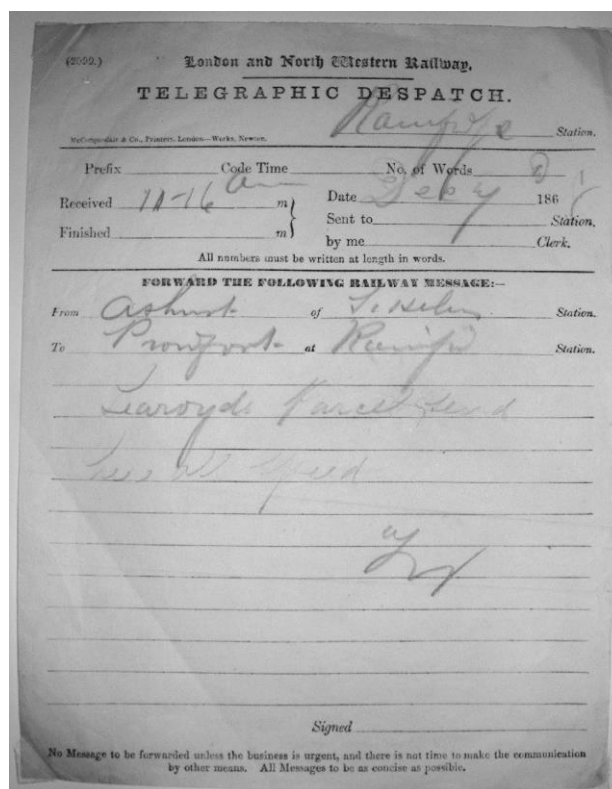 (2059.)
London and North Western Railway.
TELEGRAPHIC DESPATCH.
Station.
McCorquodale & Co., Printers, London—Works, Newton.
Prefix Code Time No. of Words
Received 11-16 am m
Date 186
Sent to Station,
Finished m
by me Clerk.
All numbers must be written at length in words.
FORWARD THE FOLLOWING RAILWAY MESSAGE:—
From Ashurst of St Helens Station.
To at Station.
Parcel Send
all speed
Signed
No Message to be forwarded unless the business is urgent, and there is not time to make the communication
by other means. All Messages to be as concise as possible.